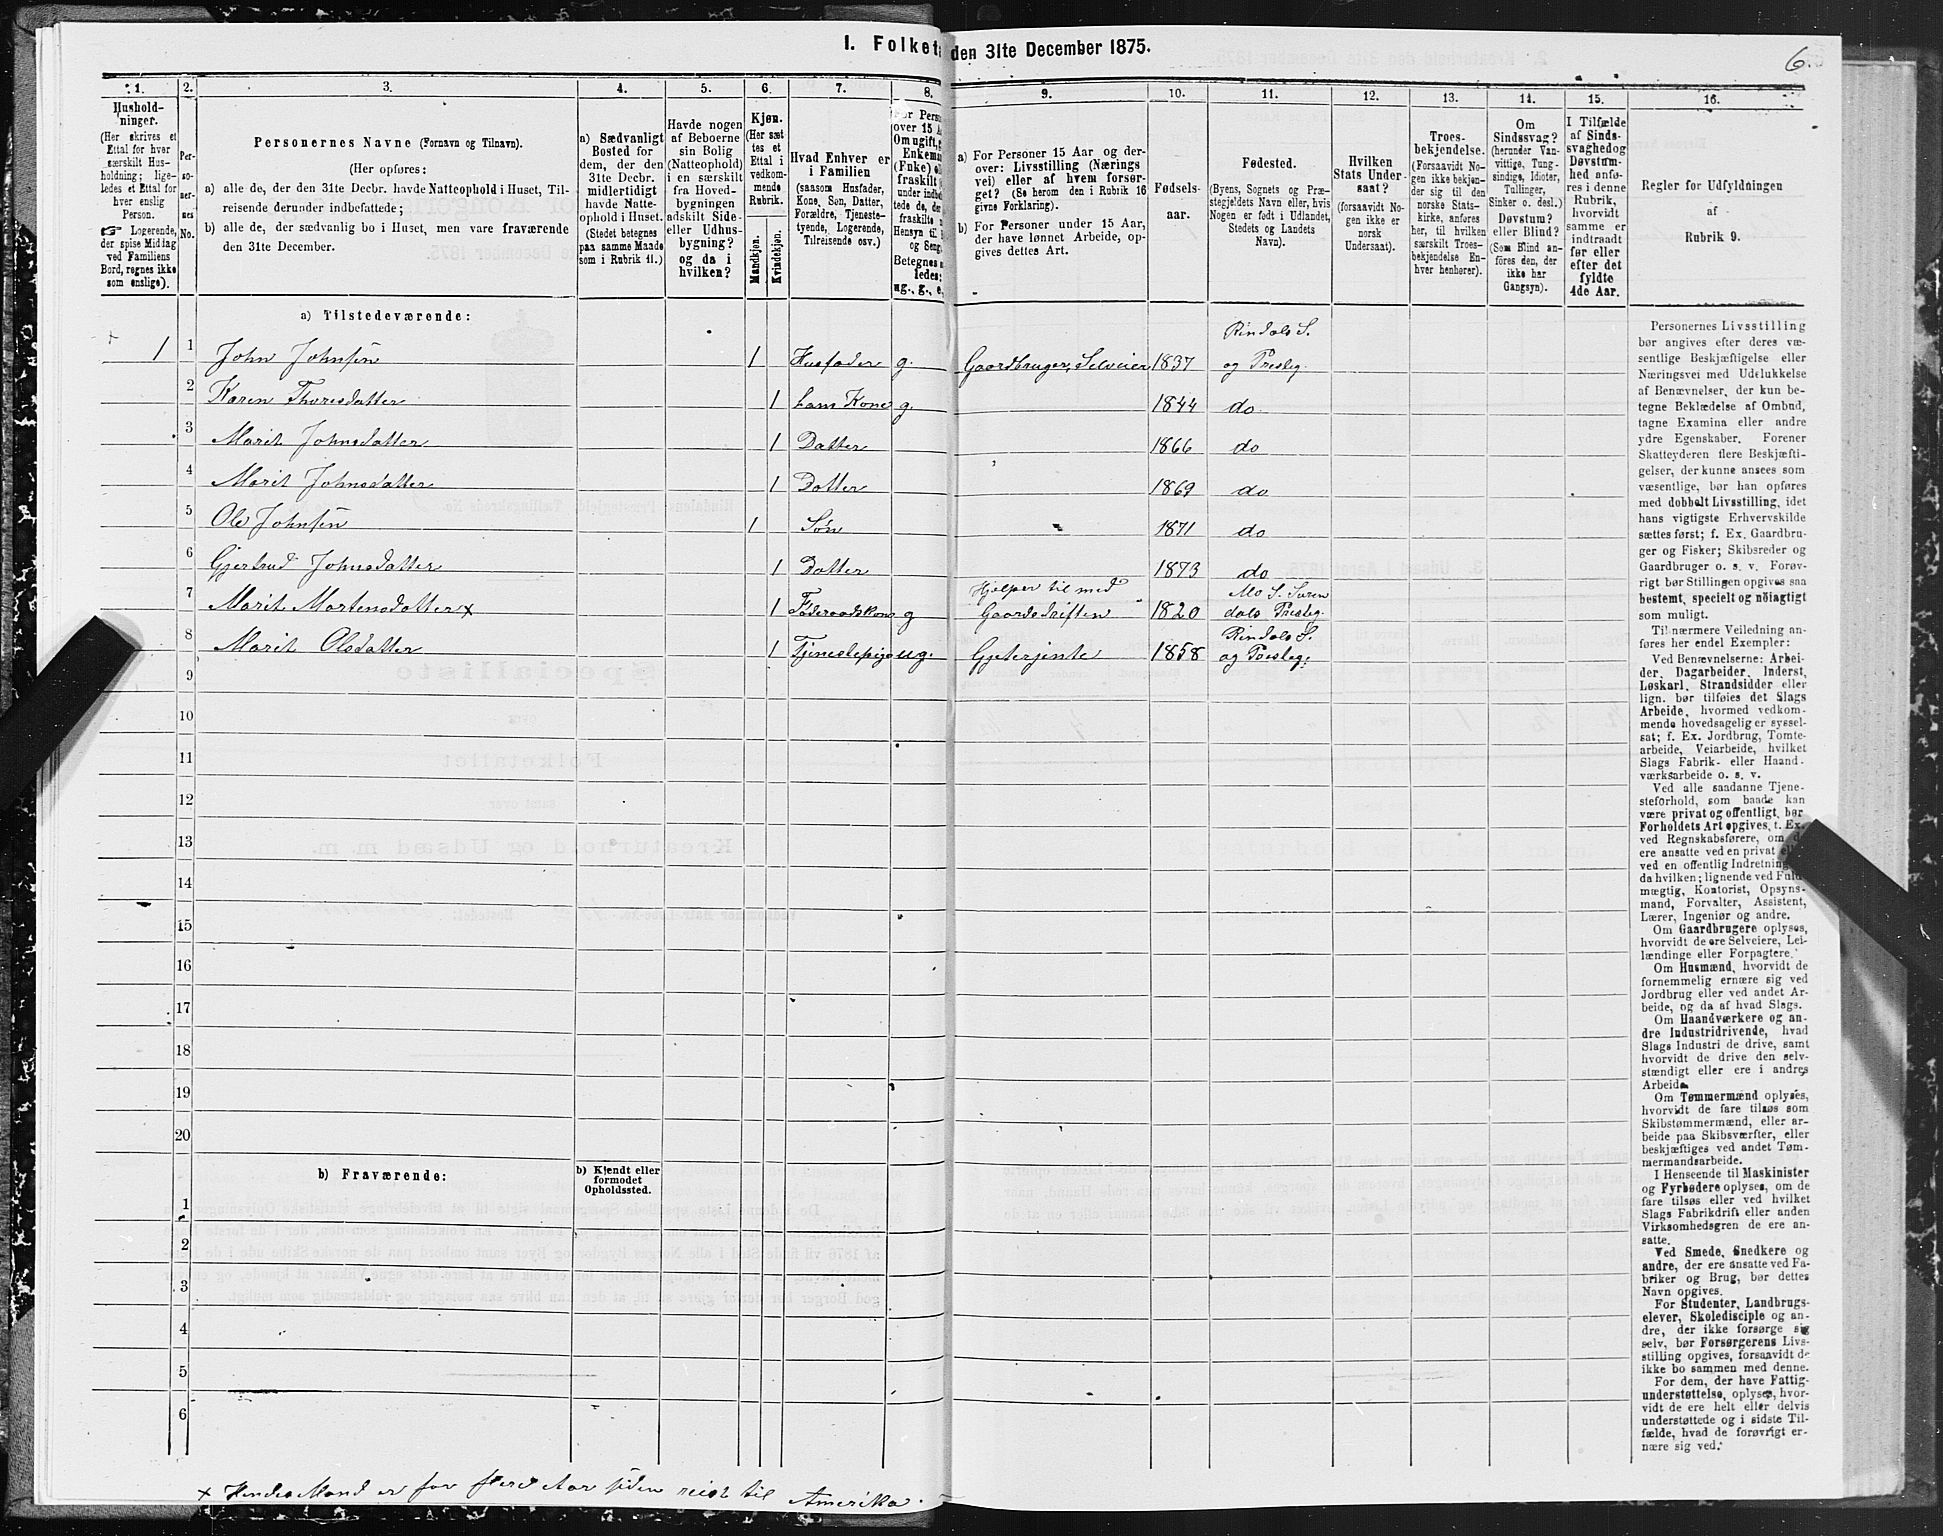 I. Folket den 31te December 1875.
6.
1. 2. 3. 4. 5. 6. 7. 8. 9. 10. 11. 12. 13. 14. 15. 16.
Hushold-
ninger.
(Her skrives et
Ettal for hver
særskilt Hus-
holdning; lige-
ledes et Ettal for
hver enslig
Person.
☞ Logerende,
der spise Middag
ved Familiens
Bord, regnes ikke
som enslige).
Per-
so-
ner-
nes
No.
Personernes Navne (Fornavn og Tilnavn).
(Her opføres:
a) alle de, der den 31te Decbr. havde Natteophold i Huset, Til-
reisende derunder indbefattede;
b) alle de, der sædvanlig bo i Huset, men vare fraværende
den 31te December.
a) Sædvanligt
Bosted for
dem, der den
31te Decbr.
midlertidigt
havde Natte-
ophold i Huset.
(Stedet betegnes
paa samme Maade
som i Rubrik 11.)
Havde nogen
af Beboerne
sin Bolig
(Natteophold)
i en særskilt
fra Hoved-
bygningen
adskilt Side-
eller Udhus-
bygning?
og da i
hvilken?
Kjøn.
(Her sæt
tes et
Ettal i
vedkom-
mende
Rubrik.
Mandkjøn.
Kvindekjøn.
Hvad Enhver er
i Familien
(saasom Husfader,
Kone, Søn, Datter,
Forældre, Tjeneste-
tyende, Logerende,
Tilreisende osv.)
For Perso
over 15 A
Om ugift, g
Enkem
(Fuke) el
fraskilt
under indb
tede de, de
fraskilte
Hensyn til
og Seng
Betegnes
ledes:
ug., g., e
a) For Personer 15 Aar og der-
over: Livsstilling (Nærings
vei) eller af hvem forsør-
get? (Se herom den i Rubrik 16
givne Forklaring).
b) For Personer under 15 Aar,
der have lønnet Arbeide, op-
gives dettes Art.
Fødsels-
aar.
Fødested.
(Byens, Sognets og Præ-
stegjeldets Navn eller, hvis
Nogen er født i Udlandet,
Stedets og Landets
Navn).
Hvilken
Stats Under-
saat?
(forsaavidt No-
gen ikke er
norsk
Undersaat).
Troes-
bekjendelse.
(Forsaavidt No-
gen ikke bekjen-
der sig til den
norske Stats-
kirke, anføres
her, til hvilken
særskilt Troes-
bekjendelse En-
hver henhører).
Om
Sindssvag?
(herunder Van-
vittige, Tung-
sindige, Idioter,
Tullinger,
Sinker o. desl.)
Døvstum?
eller Blind?
(Som Blind an-
føres den, der
ikke har
Gangsyn).
I Tilfælde
af Sinds-
svaghed og
Døvstum-
hed anfø-
res i denne
Rubrik,
hvorvidt
samme er
indtraadt
før eller
efter det
fyldte
4de Aar.
Regler for Udfyldningen
af
Rubrik 9.
a) Tilstedeværende:
1 1 John Johnsen 1 Husfader g. Gaardbruger, Selveier 1837 Rindals S.
og Præsteg.
2 Karen Thoresdatter 1 hans Kone g. 1844 do
3 Marit Johnsdatter 1 Datter 1866 do
4 Marit Johnsdatter 1 Datter 1869 do
5 Ole Johnsen 1 Søn 1871 do
6 Gjertrud Johnsdatter 1 Datter 1873 do
7 Marit Mortensdatter x 1 Føderaadskone g Hjelper til med
Gaardsdriften 1820 Mo S. Suren
dals Præsteg.
8 Marit Olsdatter 1 Tjenestepige ug. Gjeterjente 1858 Rindals S.
og Præsteg:
9
10
11
12
13
14
15
16
17
18
19
20
b) Fraværende:
b) Kjendt eller
formodet
Opholdssted.
1
2
3
4
5
6
x Hendes Mand er for flere Aar siden reist til Amerika.
Personernes Livsstilling
bør angives efter deres væ-
sentlige Beskjæftigelse eller
Næringsvei med Udelukkelse
af Benævnelser, der kun be-
tegne Beklædelse af Ombud,
tagne Examina eller andre
ydre Egenskaber. Forener
Skatteyderen flere Beskjæfti-
gelser, der kunne ansees som
væsentlige, bør han opføres
med dobbelt Livsstilling, idet
hans vigtigste Erhvervskilde
sættes først; f. Ex. Gaardbru-
ger og Fisker; Skibsreder og
Gaardbruger o. s. v. Forøv-
rigt bør Stillingen opgives saa
bestemt, specielt og nøiagtigt
som muligt.
Til nærmere Veiledning an-
føres her endel Exempler:
Ved Benævnelserne: Arbei-
der, Dagarbeider, Inderst,
Løskarl, Strandsidder eller
lign. bør tilføies det Slags
Arbeide, hvormed vedkom-
mende hovedsagelig er syssel-
sat; f. Ex. Jordbrug, Tomte-
arbeide, Veiarbeide, hvilket
Slags Fabrik- eller Haand-
værksarbeide o. s. v.
Ved alle saadanne Tjene-
steforhold, som baade kan
være privat og offentligt, bør
Forholdets Art opgives, t. Ex.
ved Regnskabsførere, om de
ere ansatte ved en privat eller
ved en offentlig Indretning
da hvilken; lignende ved Fuld-
mægtig, Kontorist, Opsyns-
mand, Forvalter, Assistent,
Lærer, Ingeniør og andre.
Om Gaardbrugere oplyses,
hvorvidt de ere Selveiere, Lei-
lændinge eller Forpagtere.
Om Husmænd, hvorvidt de
fornemmelig ernære sig ved
Jordbrug eller ved andet Ar-
beide, og da af hvad Slags.
Om Haandværkere og an-
dre Industridrivende, hvad
Slags Industri de drive, samt
hvorvidt de drive den selv-
stændigt eller ere i andres
Arbeide.
Om Tømmermænd oplyses,
hvorvidt de fare tilsøs som
Skibstømmermænd, eller ar-
beide paa Skibsværfter, eller
beskjæftiges ved andet Tøm-
mermandsarbeide.
I Henseende til Maskinister
og Fyrbødere oplyses, om de
fare tilsøs eller ved hvilket
Slags Fabrikdrift eller anden
Virksomhedsgren de ere an-
satte.
Ved Smede, Snedkere og
andre, der ere ansatte ved Fa-
briker og Brug, bør dettes
Navn opgives.
For Studenter, Landbrugs-
elever, Skoledisciple og an-
dre, der ikke forsørge sig
selv, bør Forsørgerens Livs-
stilling opgives, forsaavidt de
ikke bo sammen med denne.
For dem, der have Fattig-
understøttelse, oplyses, hvor-
vidt de ere helt eller delvis
understøttede og i sidste Til-
fælde, hvad de forøvrigt er-
nære sig ved.